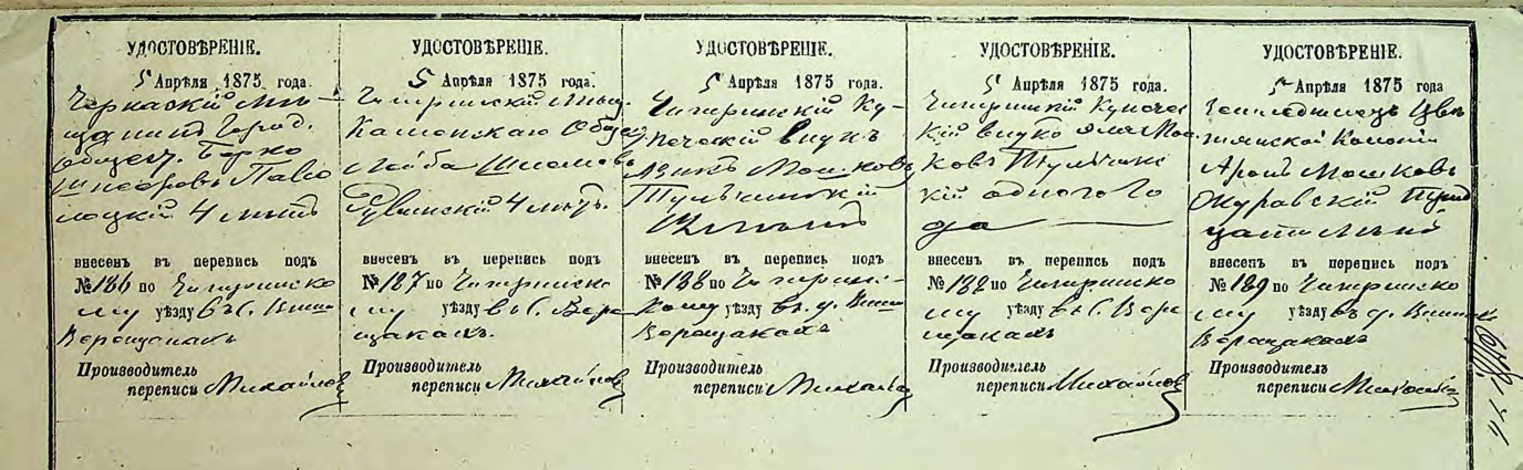 УДОСТОВѢРЕНІЕ.
5 Апрѣля 1875 года.
Черкаскій Мѣ-
щанинъ Город.
Общест. Берко
Шнеоровъ Паво
лоцкій 4 лѣтъ
внесенъ въ перепись подъ
№ 186 по Чигринско
му уѣзду въ с.
Верещакахъ
Производитель
переписи Михайлов
УДОСТОВѢРЕНІЕ.
5 Апрѣля 1875 года.
Чигринскій Мѣщ.
Каменскаго Общес.
Лейба Шломовъ
4 лѣтъ.
внесенъ въ перепись подъ
№ 187 по Чигринско
му уѣзду въ с. Вере
щакахъ.
Производитель
переписи Михайлов
УДОСТОВѢРЕНІЕ.
5 Апрѣля 1875 года.
Чигринскій Ку-
печескій внукъ
Азикъ Мошковъ
Тульчинскій
внесенъ въ перепись подъ
№ 188 по Чигринс-
кому уѣзду въ
Верещакахъ
Производитель
переписи Михайлов
УДОСТОВѢРЕНІЕ.
5 Апрѣля 1875 года.
Чигринскій Купечес
кій внукъ Мос
ковъ Тульчинс
кій одного го
да
внесенъ въ перепись подъ
№ 188 по Чигринско
му уѣзду въ с. Вере
щакахъ
Производитель
переписи Михайлов
УДОСТОВѢРЕНІЕ.
5 Апрѣля 1875 года.
Земледѣлецъ
Колоніи
Аронъ Мошковъ
Журавскій
цати лѣтъ
внесенъ въ перепись подъ
№ 189 по Чигринско
му уѣзду въ
Верещакахъ
Производитель
переписи Михайлов